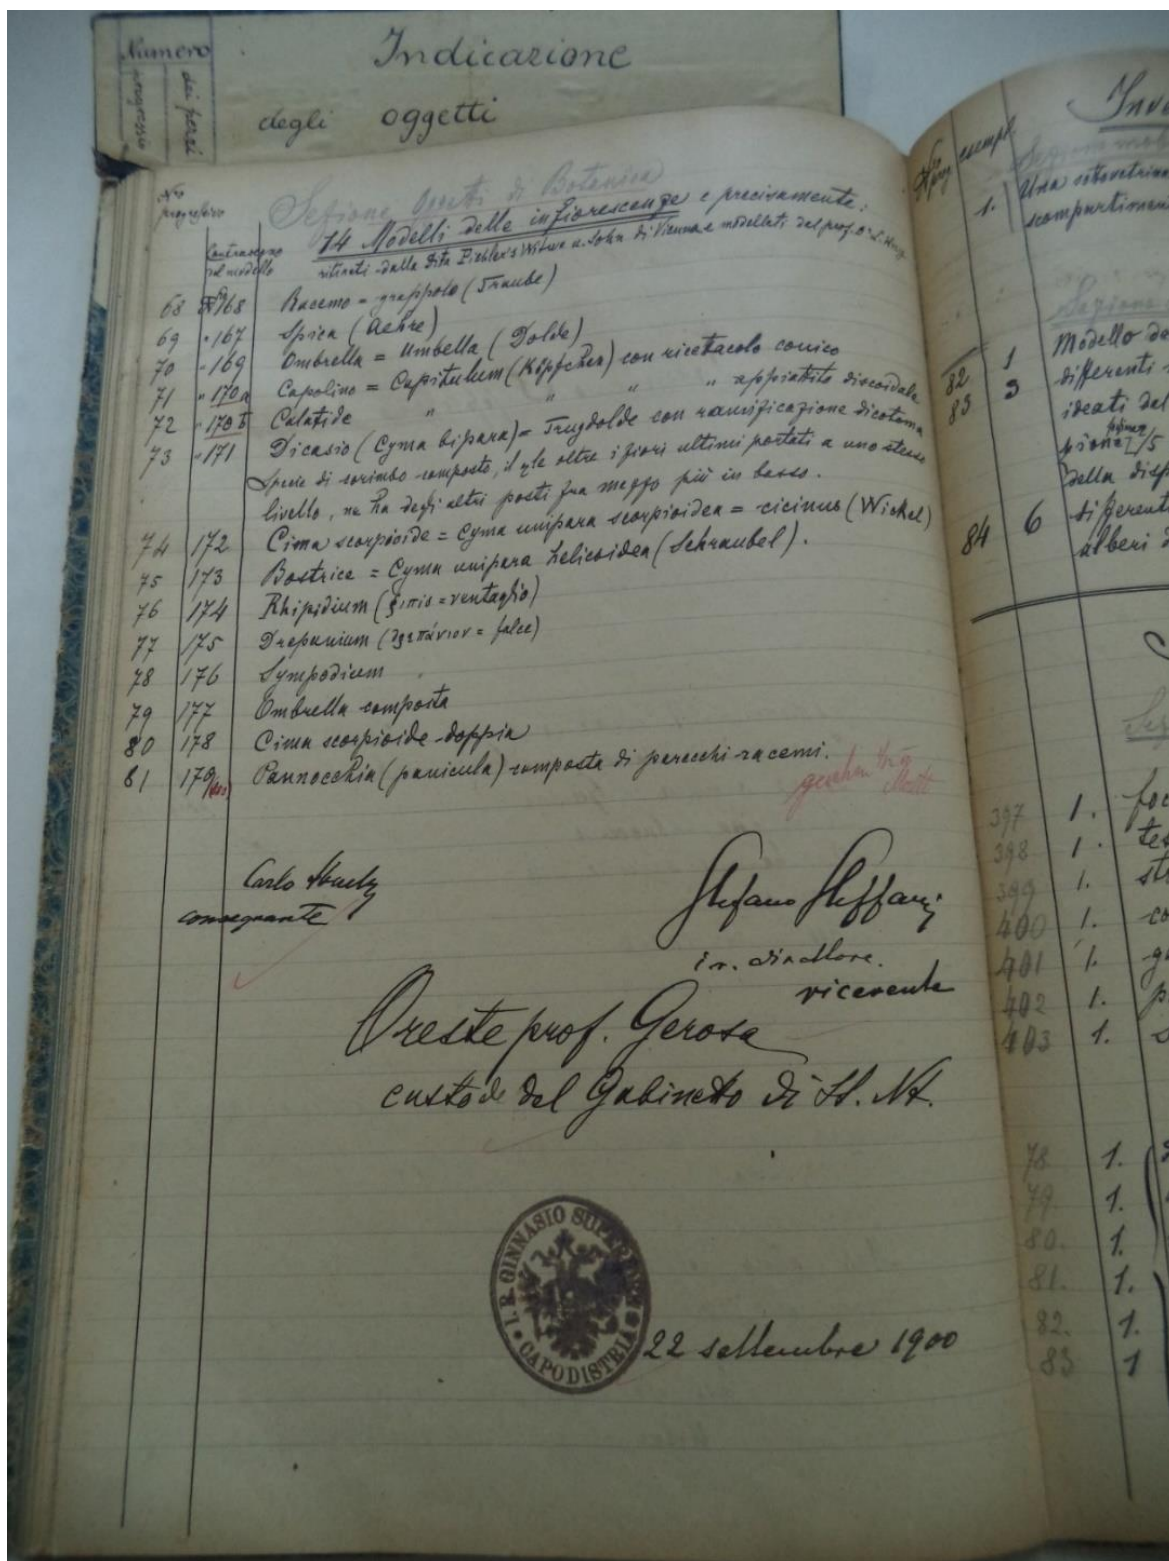 Numero
progressivo
dei pezzi
Indicazione
degli oggetti
Nro
progressivo
Sezione Oggetti di Botanica
14 Modelli delle infiorescenze e precisamente:
Contrassegno
del modello
ritirati dalla Ditta Pichler's Witwe u. Sohn di Vienna e modellati del prof. Dr
68 No 168 Racemo = grappolo (Traube)
69 " 167 Spica (Aehre)
70 " 169 Ombrella = Umbella (Dolde)
71 " 170a Capolino = Capitulum (Köpfchen) con ricettacolo conico
72 " 170b Calatide " " " appiattito discoidale
73 " 171 Dicasio (Cyma bipara) = Trugdolde con ramificazione dicotoma
Specie di corimbo composto, il qle oltre i fiori ultimi portati a uno stesso
livello, ne ha degli altri posti fra mezzo più in basso.
74 172 Cima scorpioide = Cyma unipara scorpioidea = cicinus (Wickel)
75 173 Bostrice = Cyma unipara helicoidea (Schraubel).
76 174 Rhipidium (ῥιπίς = ventaglio)
77 175 Drepanium (δρεπάνιον = falce)
78 176 Sympodium
79 177 Ombrella composta
80 178 Cima scorpioide doppia
81 179 Pannocchia (panicula) composta di parecchi racemi.
gesehen
Carlo
consegnante
Stefano Steffani
i.r. direttore.
ricevente
Oreste prof. Gerosa
custode del Gabinetto di St. Nt.
I. R. GINNASIO SUPERIORE
CAPODISTRIA
22 settembre 1900
Nro
prog
esempl.
1. Una
scompartimen
Sezione
82 1 Modello de
83 3 differenti
ideati del
della disp
84 6 differenti
alberi d
397 1. foc
398 1. tes
399 1. str
400 1. co
401 1. g
402 1. p
403 1.
78 1.
79. 1.
80. 1.
81. 1.
82. 1.
83 1